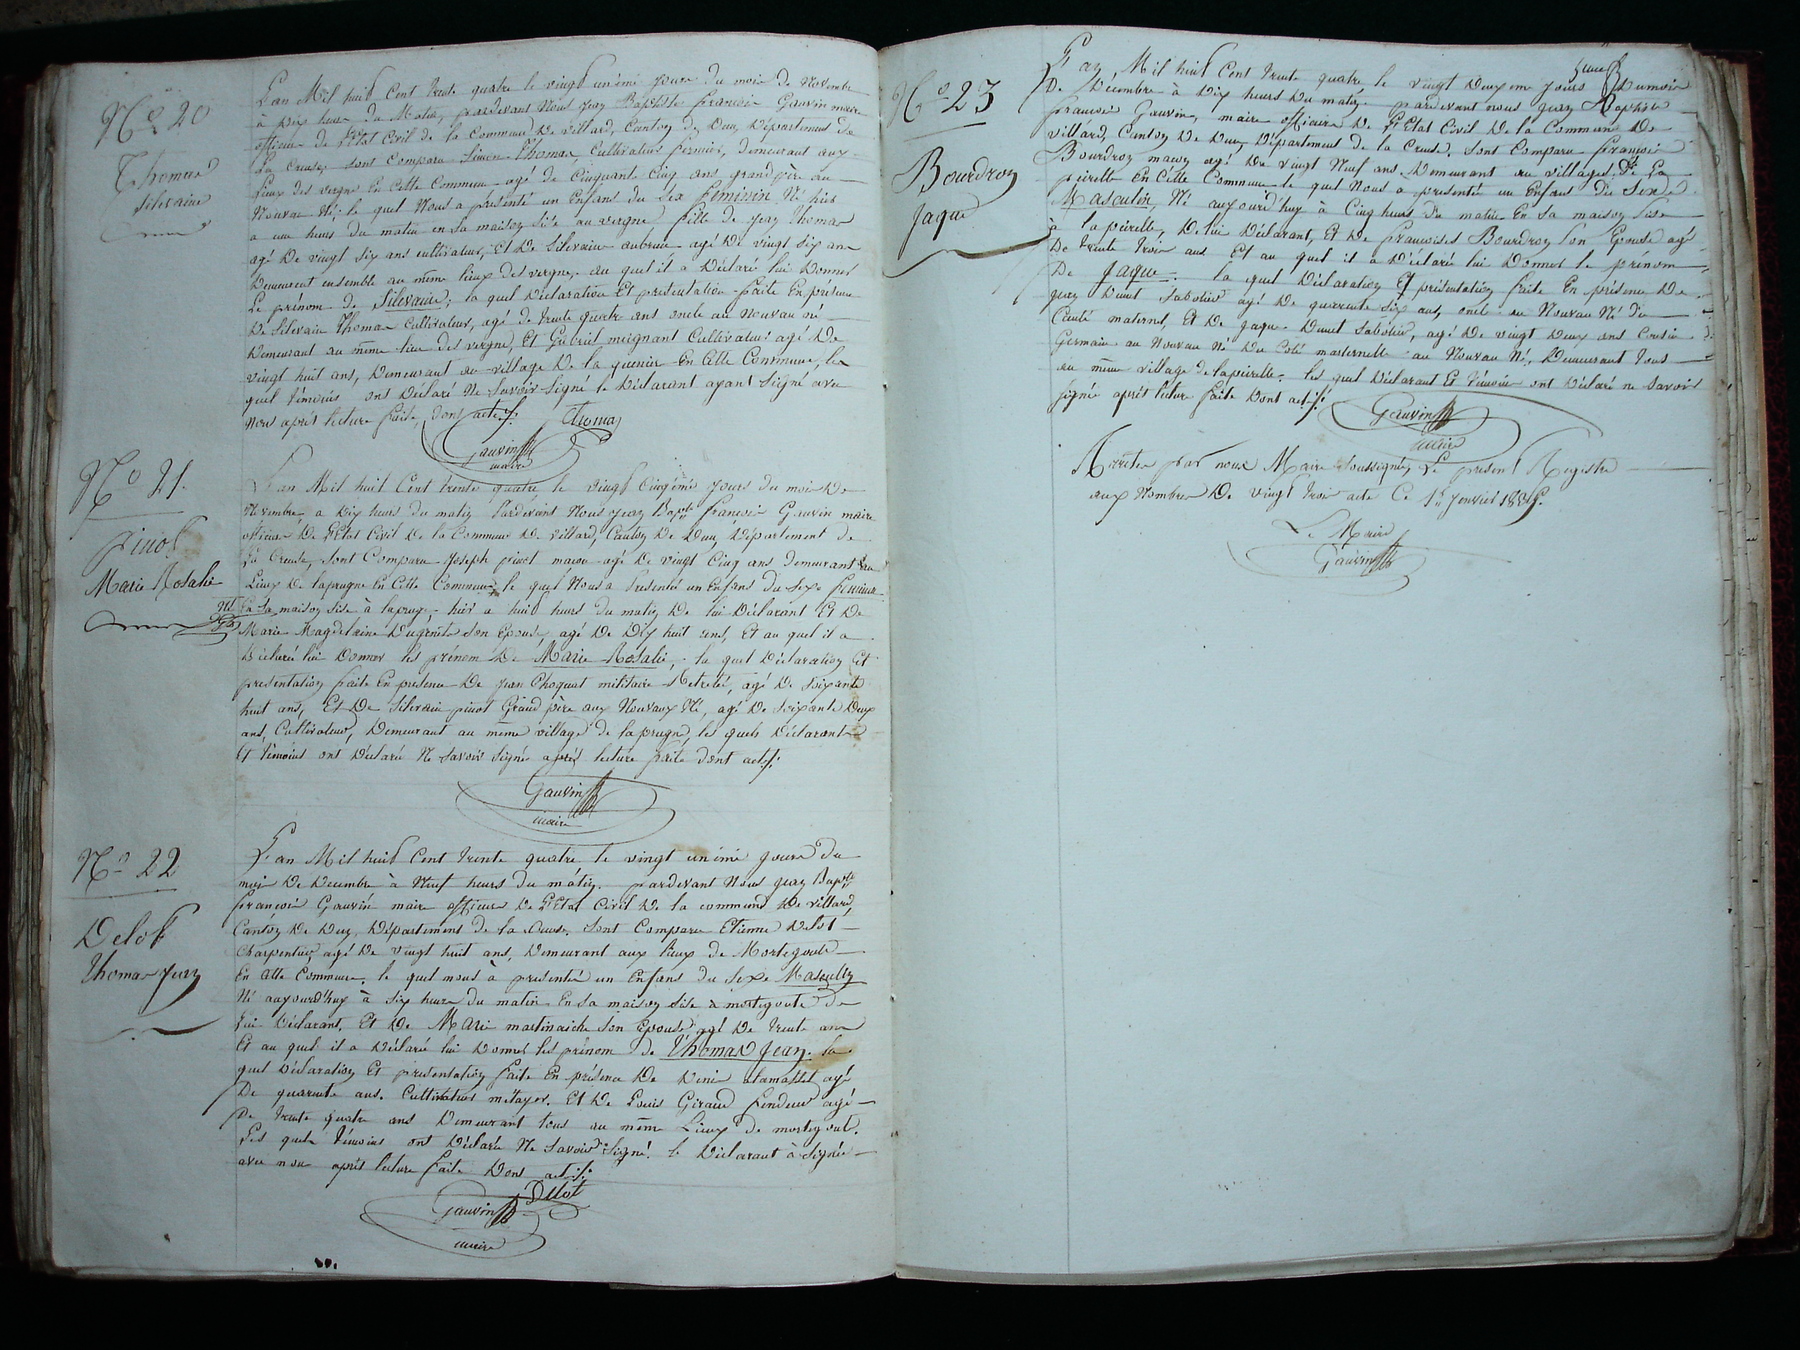 N° 20
Thomas
Silvaine
L'an Mil huit Cent trente quatre le vingt unième jour du mois de Novembre
à dix heures du Matin, pardevant Nous jean Baptiste françois Gauvin maire
officier de l'Etat Civil de la Commune De villard, Canton de Dun, Département de
La Creuse, sont Comparu Simon Thomas, Cultivateur fermier, demeurant aux
lieux des vergne En Cette Commune agé de Cinquante Cinq ans grand père au
Nouvau Né; le quel Nous a présenté un Enfans du Sex féminin Né hier
a une heurs du matin en sa maison sise au vergne fille de jean thomas
agé De vingt six ans cultivateur, Et De Silvaine aubrun agé De vingt six ans
Demeurent ensemble au même lieux des vergne, au quel il a Déclaré lui Donner
Le prénom de Silevaine; la quel Déclaration Et présentation faite En présence
De Silevain Thomas Cultivateur, agé de trente quatre ans oncle au Nouvau né
Demeurant au même lieu des vergne, Et Gabriel meignant Cultivateur agé De
vingt huit ans, Demeurant au village De la guenier En Cette Commune, les
quel témoins ont Déclaré Ne Savoir Signé le Déclarant ayant Signé avec
Nous après lecture faite, dont acte
Thomas
Gauvin
maire
N° 21
pinot
Marie Rosalie
L'an Mil huit Cent trente quatre le vingt Cinqième jours du mois De
Novembre a Dix heurs du matin Pardevant Nous jean Bapte françois Gauvin maire
officier De l'Etat Civil De la Commune De villard, Canton De Dun, Département de
La Creuse, sont Comparu Joseph pinot macon agé De vingt Cinq ans demeurant au
Lieux De laprugne En Cette Commune le quel Nous a présenté un Enfans du Sexe féminin
Né En sa maison Sise à laprugne hier a huit heurs du matin De lui Déclarant Et De
Marie Magdelaine Dugenêt son Epouse, agé De Dix huit ans, Et au quel il a
Déclaré lui Donner les prénom De Marie Rosalie, la quel Déclaration Et
presentation faite En presence De jean Choquet militaire Retreté, agé De soixante
huit ans, Et De Silevain pinot Grand père aux Nouvaux Né, agé De soixante Deux
ans, Cultivateur, Demeurant au même village de la prugne, les quels Déclarant
Et témoins ont Déclaré Ne Savoir Signé après lecture faite dont acte
Gauvin
maire
N° 22
Delot
thomas jean
L'an Mil huit Cent trente quatre le vingt unième jours du
mois De Décembre à Neuf heurs du matin. pardevant Nous jean Bapte
françois Gauvin maire officier De l'Etat Civil De la commune De villard
Canton De Dun, Département de la Creuse. Sont Comparu Etienne Delot
Charpentier agé De vingt huit ans, Demeurant aux lieux de Mortegoute
En Cette Commune. le quel nous à présenté un Enfans du Sexe Masculin
Né aujourd'huy à six heures du matin En sa maison Sise à mortegoute de
lui Déclarant, Et De Marie martinaiche son Epouse agé De trente ans
Et au quel il a Déclaré lui Donner les prénom de Thomas Jean. la
quel Déclaration Et presentation faite En présence De Deni lamasset agé
De quarente ans. Cultivateur métayer. Et De Louis Giraud fendeur agé
De trente quatre ans Demeurant tous au même Lieux de mortegoute.
Les quels témoins ont Déclaré Ne Savoir Signé. le Déclarant à Signée
avec nous après lecture faite Dont acte
Delot
Gauvin
maire
N° 23
Bourdron
Jaque
L'an, Mil huit Cent trente quatre le vingt Deuxième jours Dumois
De Décembre à Dix heurs Du matin. pardevant nous jean Baptiste
françois Gauvin, maire officier De l'Etat Civil De la Commune De
villard, Canton De Dun, Département de la Creuse. Sont Comparu françois
Bourdron macon agé De vingt Neuf ans Demeurant au village De La
peirelle En Cette Commune le quel Nous a présenté un Enfans du Sexe
Masculin, Né aujourd'huy à Cinq heurs du matin En sa maison Sise
à la peirelle, De lui Déclarant, Et De francoises Bourdron son Epouse agé
De trente trois ans Et au quel il a Déclaré lui Donner le prénom
De Jaque. la quel Déclaration Et présentation faite En présence De
jean Dunet Sabotier agé de quarente Six ans, oncle au Nouvau Né du
Couté maternel, Et De jaque Dunet Sabotier, agé De vingt Deux ans Cousin
Germain au Nouvau né Du Coté maternelle au Nouvau Né, Demeurant tous
au même village de lapeirelle. les quel Déclarant Et témoins ont Déclaré ne Savoir
Signé après lecture faite Dont acte
Gauvin
maire
Arretée par nous Maire Soussigné Le présent Registre
aux Nombre De vingt trois acte Ce 1er janvier 1835.
Le Maire
Gauvin